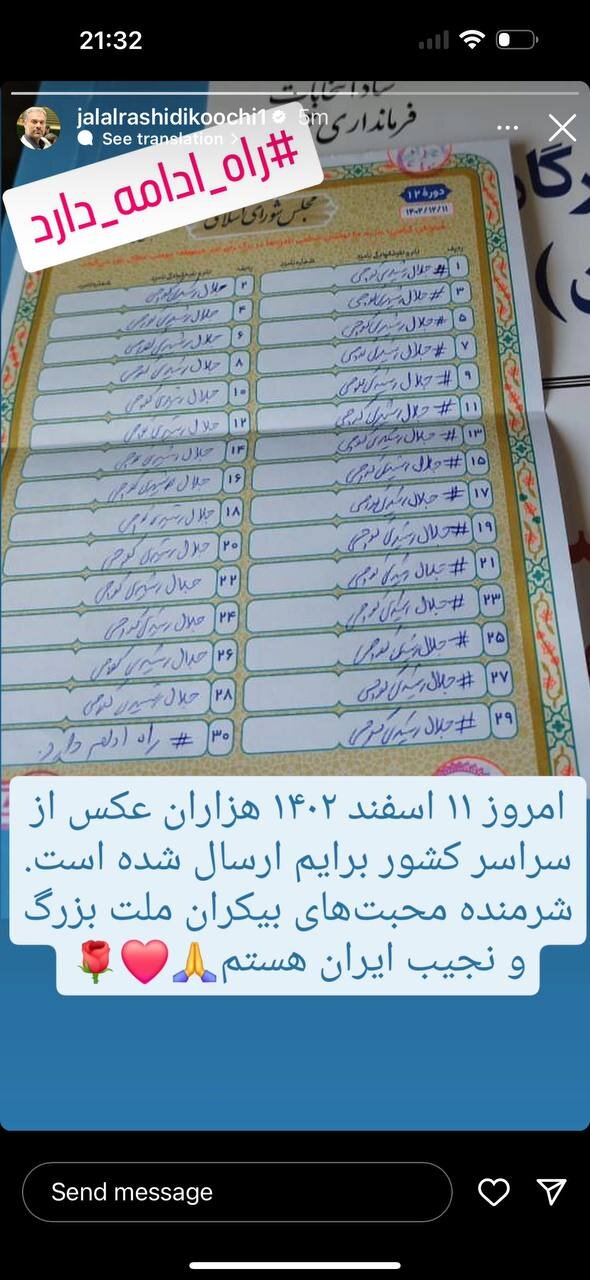 21:32
jalalrashidikoochi1 5m
See translation >
ستاد انتخابات
فرمانداری
#راه_ادامه_دارد
دورهٔ ۱۲
۱۴۰۲/۱۲/۱۱
مجلس شورای اسلامی
ردیف نام و نام خانوادگی نامزد شماره نامزد ردیف نام و نام خانوادگی نامزد شماره نامزد
۱ #جلال رشیدی کوچی ۲ جلال رشیدی کوچی
۳ #جلال رشیدی کوچی ۴ جلال رشیدی کوچی
۵ #جلال رشیدی کوچی ۶ جلال رشیدی کوچی
۷ #جلال رشیدی کوچی ۸ جلال رشیدی کوچی
۹ #جلال رشیدی کوچی ۱۰ جلال رشیدی کوچی
۱۱ #جلال رشیدی کوچی ۱۲ جلال رشیدی کوچی
۱۳ #جلال رشیدی کوچی ۱۴ جلال رشیدی کوچی
۱۵ #جلال رشیدی کوچی ۱۶ جلال رشیدی کوچی
۱۷ #جلال رشیدی کوچی ۱۸ جلال رشیدی کوچی
۱۹ #جلال رشیدی کوچی ۲۰ جلال رشیدی کوچی
۲۱ #جلال رشیدی کوچی ۲۲ جلال رشیدی کوچی
۲۳ #جلال رشیدی کوچی ۲۴ جلال رشیدی کوچی
۲۵ #جلال رشیدی کوچی ۲۶ جلال رشیدی کوچی
۲۷ #جلال رشیدی کوچی ۲۸ جلال رشیدی کوچی
۲۹ #جلال رشیدی کوچی ۳۰ # راه ادامه دارد.
امروز ۱۱ اسفند ۱۴۰۲ هزاران عکس از
سراسر کشور برایم ارسال شده است.
شرمنده محبت‌های بیکران ملت بزرگ
و نجیب ایران هستم🙏❤️🌹
Send message